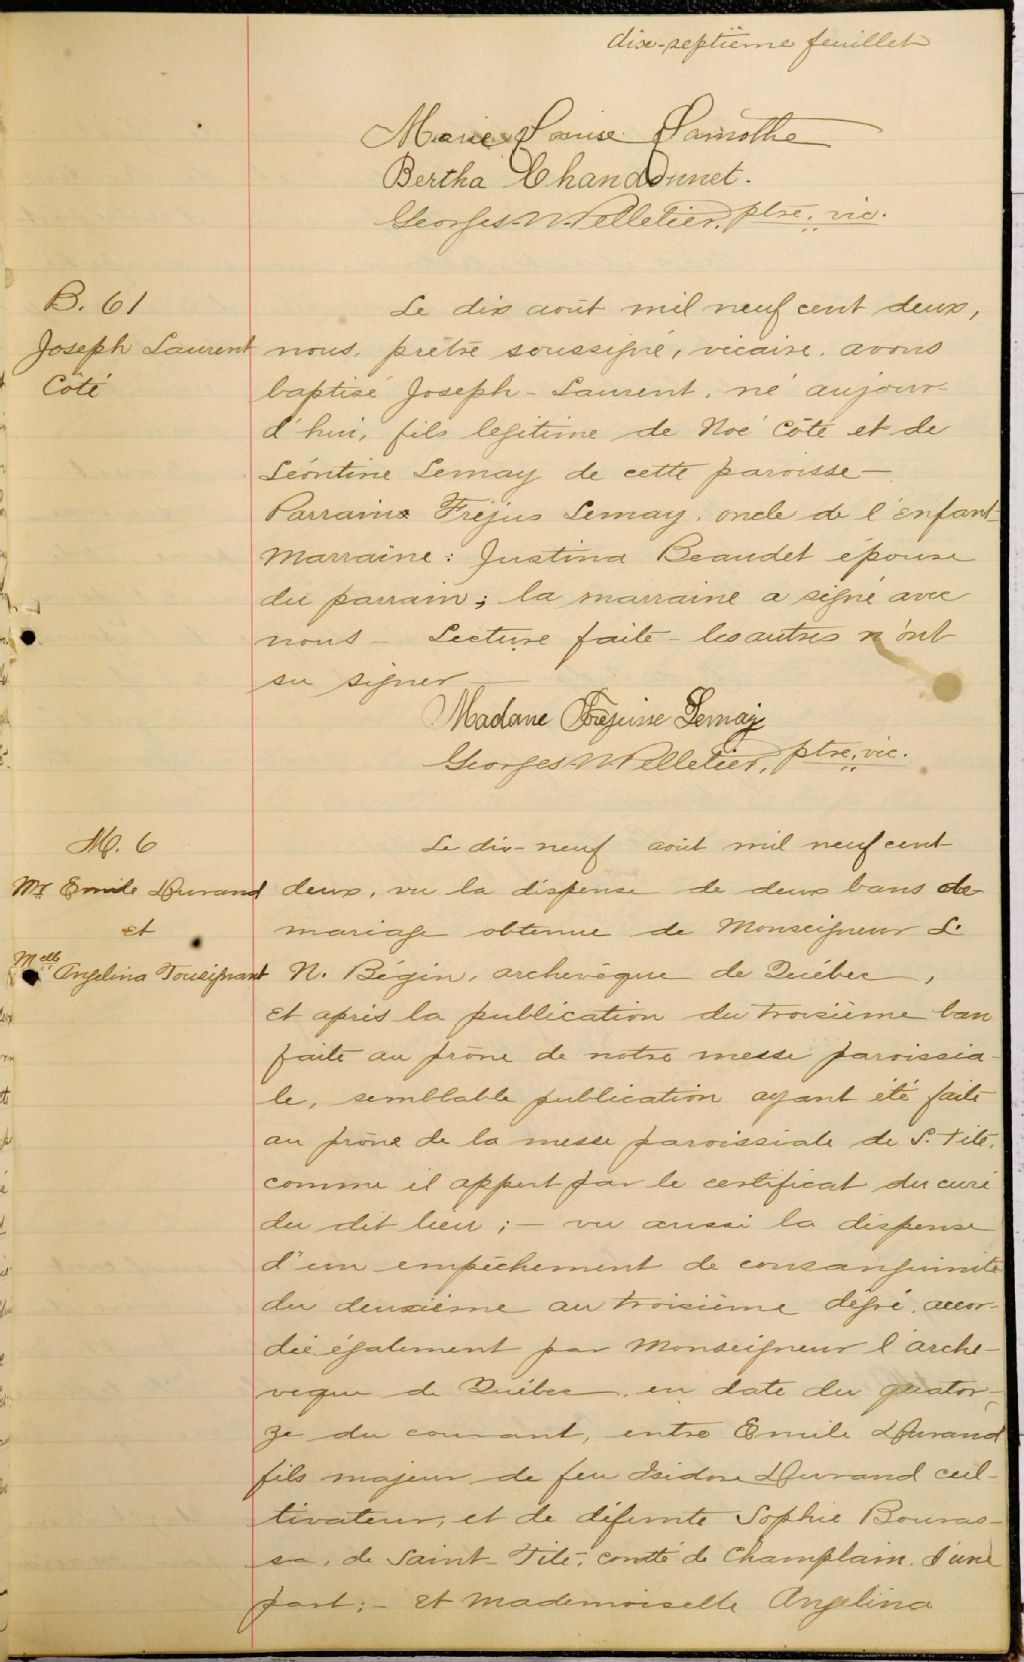 dix-septième feuillet
Marie Louise Lamothe
Bertha Chandonnet.
Georges-N-Pelletier, ptre, vic.
B. 61
Joseph Laurent
Côté
Le dix août mil neuf cent deux,
nous, prêtre soussigné, vicaire, avons
baptisé Joseph-Laurent, né aujour-
d'hui, fils legitime de Noé Côté et de
Léontine Lemay de cette paroisse—
Parrain Fréjus Lemay, oncle de l'enfant-
Marraine: Justina Beaudet épouse
du parrain; la marraine a signé avec
nous- Lecture faite- les autres n'ont
su signer—
Madame Frejusse Lemay
Georges N Pelletier, ptre, vic.
M. 6
Mr Emile Durand
et
Melle Angelina Tousignant
Le dix-neuf août mil neuf cent
deux, vu la dispense de deux bans de
mariage obtenue de Monseigneur L.
N. Bégin, archevêque de Québec,
et après la publication du troisième ban
faite au prône de notre messe paroissia-
le, semblable publication ayant été faite
au prône de la messe paroissiale de S. Tite,
comme il appert par le certificat du curé
du dit lieu;- vu aussi la dispense
d'un empêchement de consanguinité
du deuxième au troisième dégré, accor-
dée également par Monseigneur l'arche-
veque de Québec, en date du quator-
ze du courant, entre Emile Durand
fils majeur de feu Isidore Durand cul-
tivateur, et de défunte Sophie Bouras-
sa, de Saint-Tite, comté de Champlain, d'une
part;- et Mademoiselle Angelina